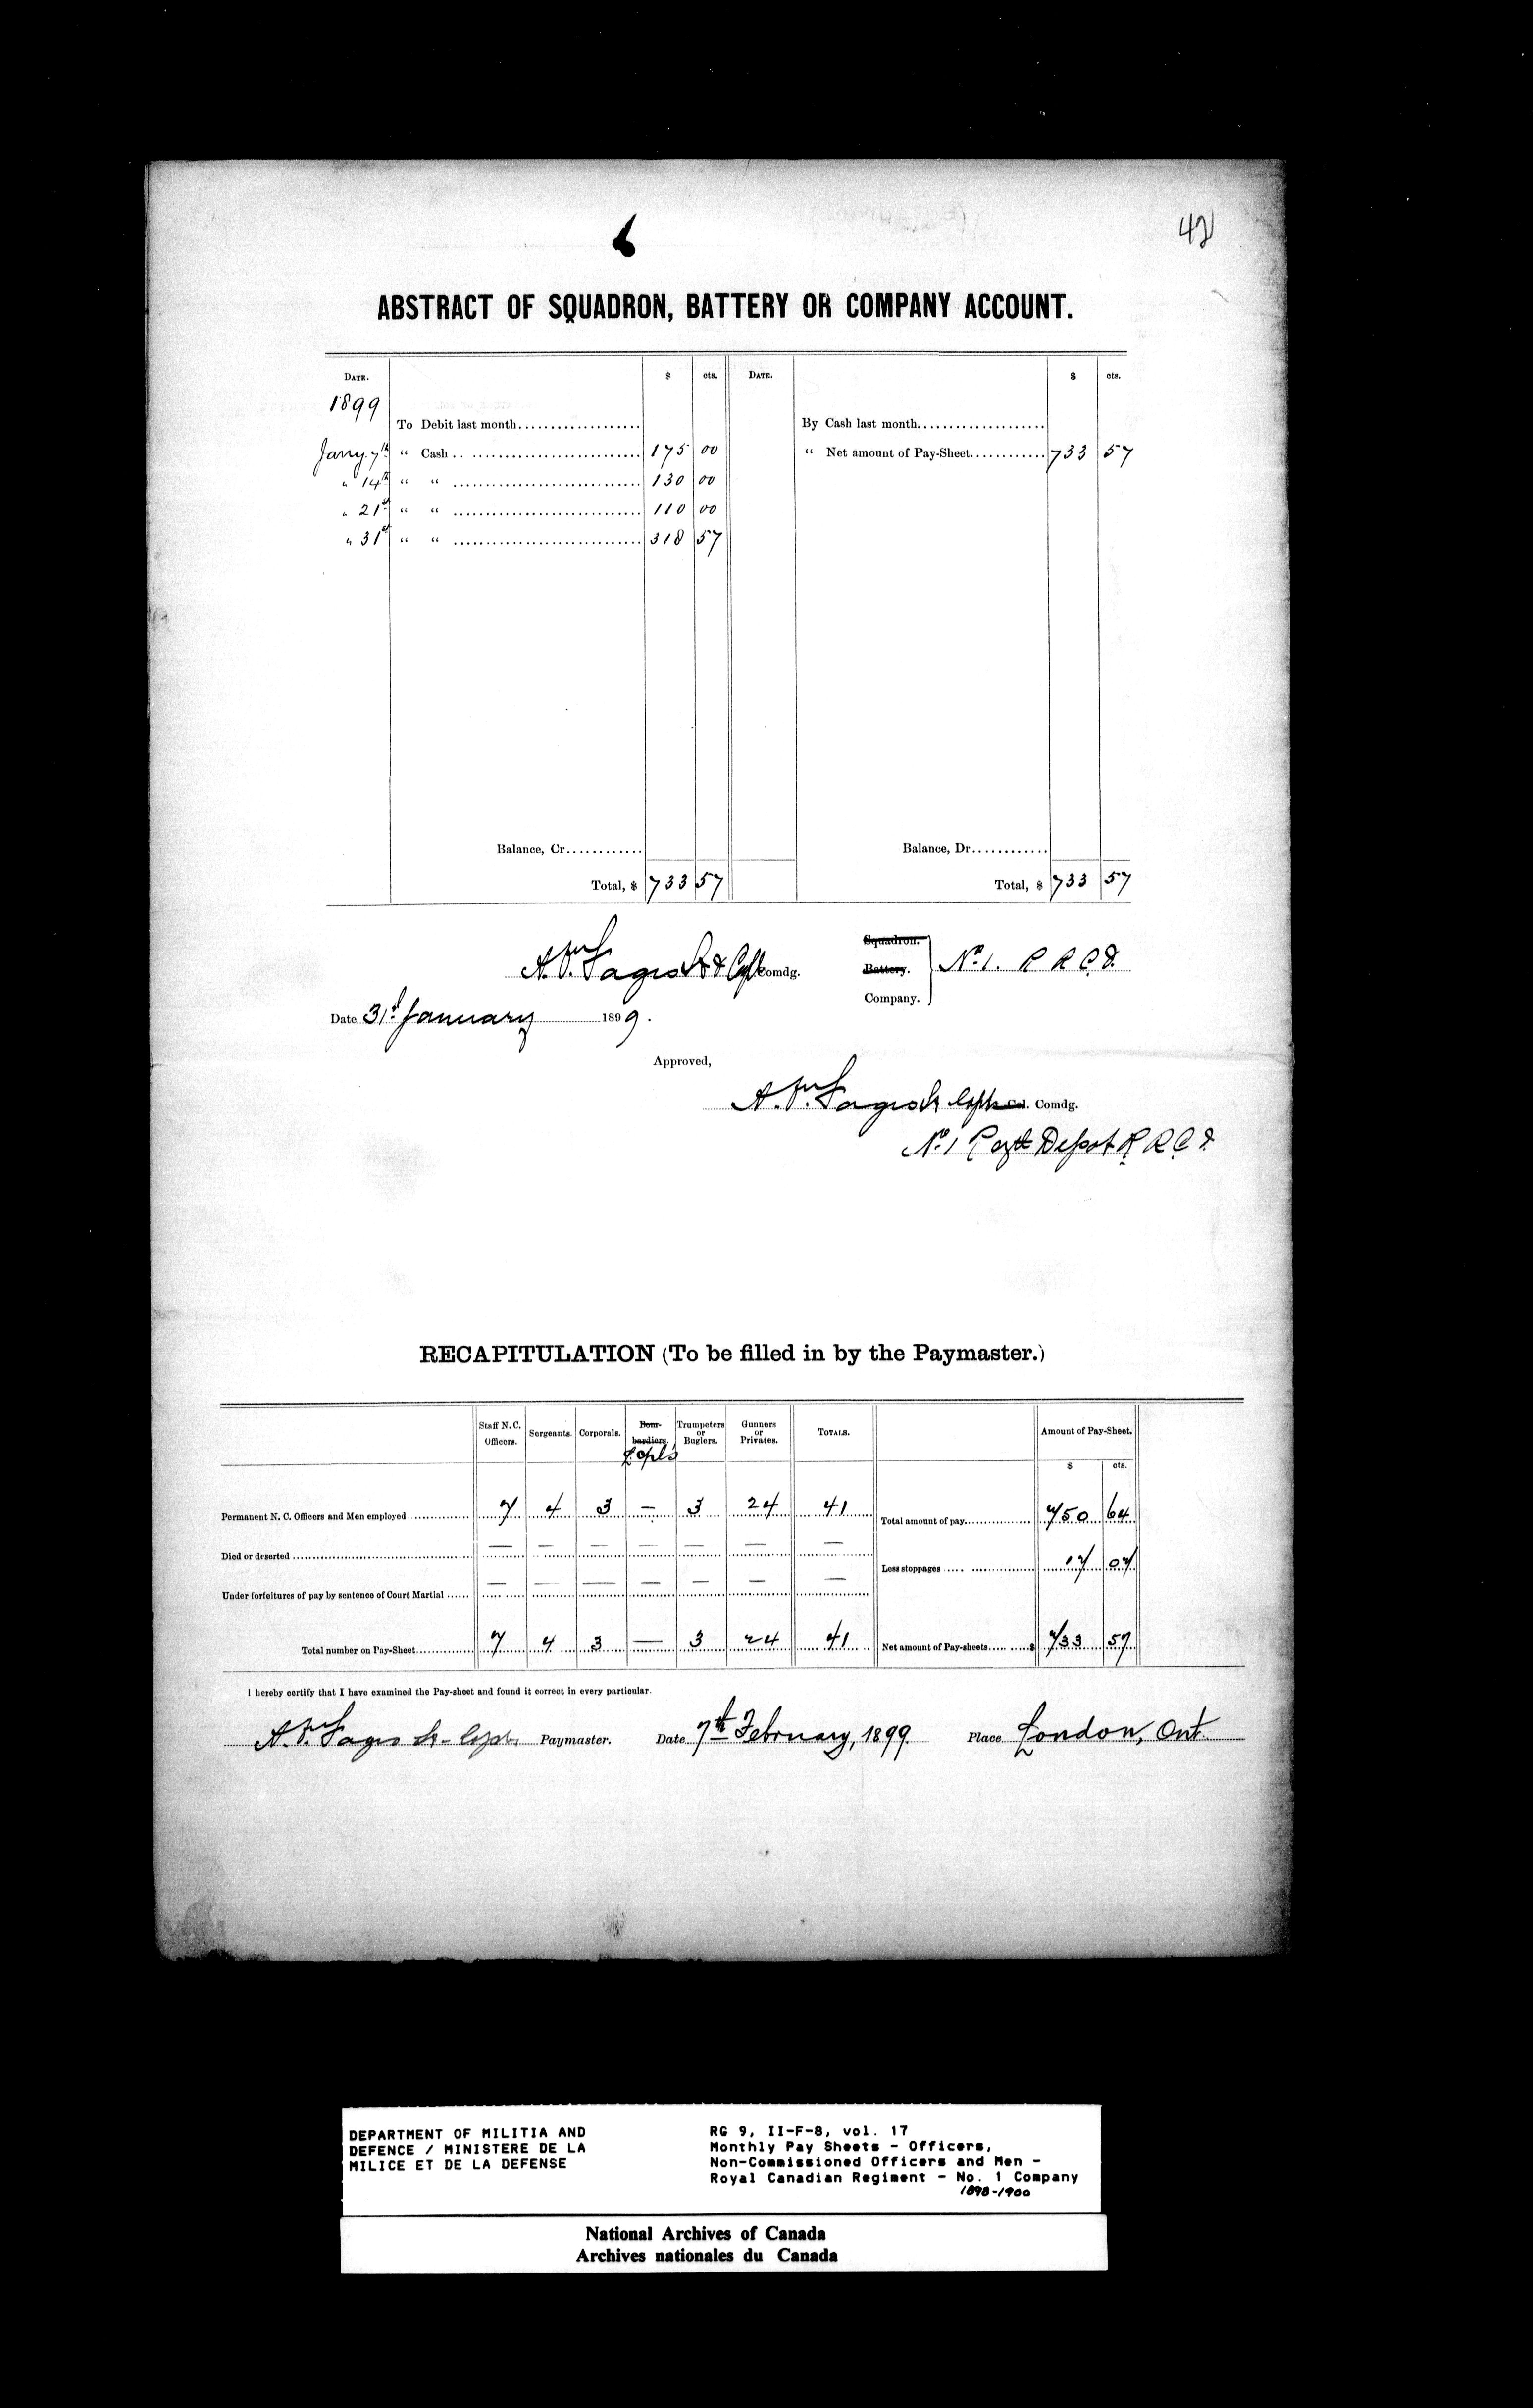 6
42
ABSTRACT OF SQUADRON, BATTERY OR COMPANY ACCOUNT.
DATE. $ cts. DATE. $ cts.
1899
To Debit last month By Cash last month
Jany. 7th " Cash 175 00 " Net amount of Pay-Sheet 733 57
" 14th " " 130 00
" 21st " " 110 00
" 31st " " 318 57
Balance, Cr Balance, Dr
Total, $ 733 57 Total, $ 733 57
Squadron.
Comdg. Battery. No. 1. R R C I.
Company.
Date 31st January 1899.
Approved,
Col. Comdg.
No. 1 Depot R R C I.
RECAPITULATION (To be filled in by the Paymaster.)
Staff N.C. Officers. Sergeants. Corporals. Bombardiers. Trumpeters or Buglers. Gunners or Privates. TOTALS. Amount of Pay-Sheet.
L. Cpls
$ cts.
Permanent N. C. Officers and Men employed 7 4 3 — 3 24 41 Total amount of pay 750 64
Died or deserted — — — — — — —
Less stoppages 17 07
Under forfeitures of pay by sentence of Court Martial — — — — — — —
Total number on Pay-Sheet 7 4 3 — 3 24 41 Net amount of Pay-sheets $ 733 57
I hereby certify that I have examined the Pay-sheet and found it correct in every particular.
Paymaster. Date 7th February, 1899. Place London, Ont.
DEPARTMENT OF MILITIA AND
DEFENCE / MINISTERE DE LA
MILICE ET DE LA DEFENSE
RG 9, II-F-8, vol. 17
Monthly Pay Sheets - Officers,
Non-Commissioned Officers and Men -
Royal Canadian Regiment - No. 1 Company
1898-1900
National Archives of Canada
Archives nationales du Canada